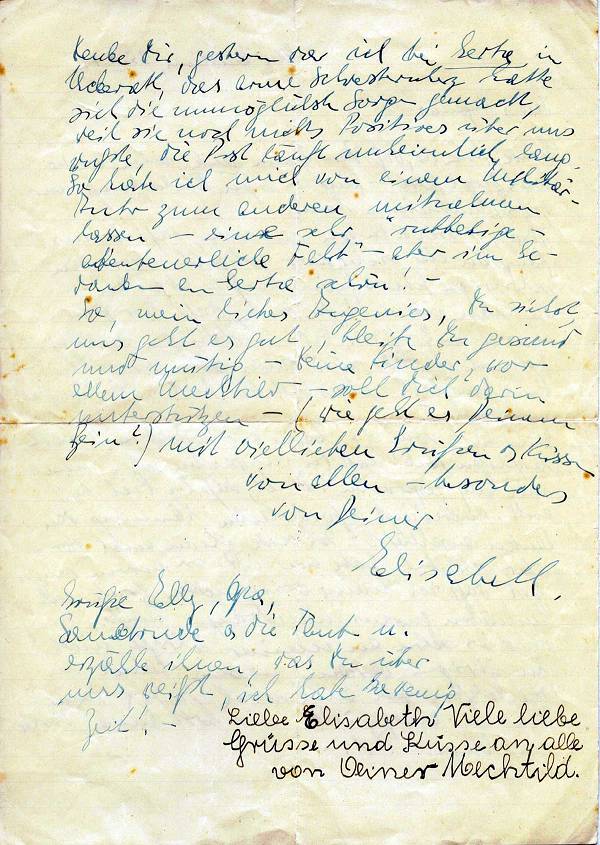 Denke Dir, gestern war ich bei Gertrud in
Uckerath, das arme Schwesterherz hatte
sich die unmöglichste Sorgen gemacht,
weil sie noch nichts Positives über uns
wußte, die Post läuft unheimlich lang.
So habe ich mich von einem Militär-
Auto zum anderen mitnehmen
lassen – eine sehr
abenteuerliche – aber im Ge-
danken an schön! –
So, mein liebes, Du siehst,
uns geht es gut, bleibe Du gesund
und mutig – Deine Kinder, vor
allem Mechtild – soll Dich darin
unterstützen – (wie geht es Deinem
Bein?) mit viellieben Grüßen & Küssen
von allen – besonders
von Deiner
Elisabeth.
Grüße Elly, Opa,
& die Tant u.
erzähle ihnen, was Du über
uns weißt, ich habe so wenig
Zeit! –
Liebe Elisabeth Viele liebe
Grüsse und Küsse an alle
von Deiner Mechtild.